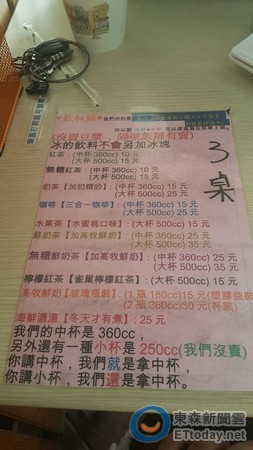 飲料類
(沒賣豆漿，隔壁飯糰有賣)
冰的飲料不會另加冰塊
紅茶 (中杯 360cc) 10 元
(大杯 500cc) 15 元
無糖紅茶：(中杯 360cc) 10 元
(大杯 500cc) 15 元
奶茶【加奶精的】：(中杯 360cc) 15 元
(大杯 500cc) 20 元
咖啡【三合一咖啡】：(中杯 360cc) 15 元
(大杯 500cc) 20 元
水果茶【水蜜桃口味】：(大杯 500cc) 15 元
鮮奶茶【加高牧鮮奶】：(中杯 360cc) 25 元
(大杯 500cc) 35 元
無糖鮮奶茶【加高牧鮮奶】：(中杯 360cc) 25 元
(大杯 500cc) 35 元
檸檬紅茶【雀巢檸檬紅茶】：(大杯 500cc) 15 元
高牧鮮奶【玻璃瓶裝】：(1 瓶 180cc)15 元(塑膠袋裝)
(2 瓶 360cc)30 元(杯裝)
海鮮濃湯【冬天才有煮】：25 元
我們的中杯是 360cc，
另外還有一種小杯是 250cc(我們沒賣)
你講中杯，我們就是拿中杯，
你講小杯，我們還是拿中杯。
3
桌
東森新聞雲
ETtoday.net